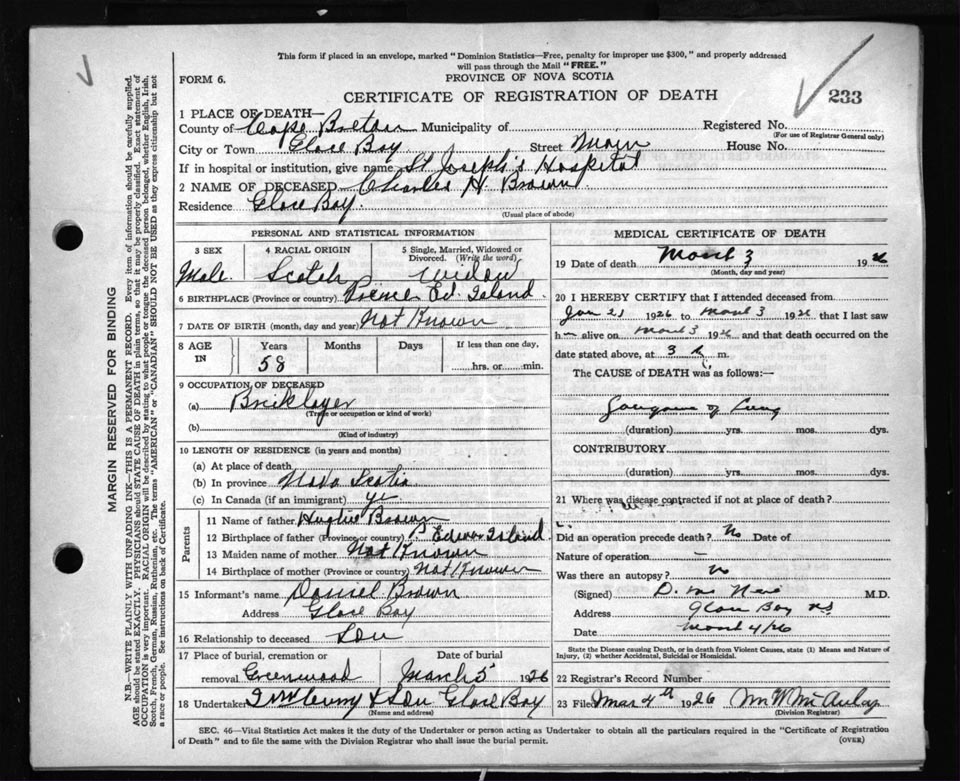 This form if placed in an envelope, marked "Dominion Statistics—Free, penalty for improper use $300," and properly addressed
will pass through the Mail "FREE."
FORM 6.
PROVINCE OF NOVA SCOTIA
CERTIFICATE OF REGISTRATION OF DEATH
233
1 PLACE OF DEATH—
County of Cape Breton Municipality of Registered No.
(For use of Registrar General only)
City or Town Glace Bay Street Main House No.
If in hospital or institution, give name St Joseph's Hospital
2 NAME OF DECEASED Charles H. Brown
Residence Glace Bay.
(Usual place of abode)
PERSONAL AND STATISTICAL INFORMATION
3 SEX 4 RACIAL ORIGIN 5 Single, Married, Widowed or Divorced. (Write the word)
Male. Scotch Widow
6 BIRTHPLACE (Province or country) Prince Ed. Island.
7 DATE OF BIRTH (month, day and year) Not Known
8 AGE IN Years Months Days If less than one day,
58 hrs. or min.
9 OCCUPATION OF DECEASED
(a) Bricklayer
(Trade or occupation or kind of work)
(b)
(Kind of industry)
10 LENGTH OF RESIDENCE (in years and months)
(a) At place of death
(b) In province Nova Scotia
(c) In Canada (if an immigrant)
Parents
11 Name of father Hughie Brown
12 Birthplace of father (Province or country) P. Edwar Island.
13 Maiden name of mother Not Known
14 Birthplace of mother (Province or country) Not Known
15 Informant's name Daniel Brown
Address Glace Bay
16 Relationship to deceased Son
17 Place of burial, cremation or removal Greenwood Date of burial March 5 1926
18 Undertaker & Son Glace Bay
(Name and address)
MEDICAL CERTIFICATE OF DEATH
19 Date of death March 3 1926
(Month, day and year)
20 I HEREBY CERTIFY that I attended deceased from
Jan 21 1926 to March 3 1926, that I last saw
h alive on March 3 1926 and that death occurred on
date stated above, at 3 m.
The CAUSE of DEATH was as follows:—
Gangrene of Lung
(duration) yrs. mos. dys.
CONTRIBUTORY
(duration) yrs. mos. dys.
21 Where was disease contracted if not at place of death?
Did an operation precede death? No Date of
Nature of operation —
Was there an autopsy? No
(Signed) D. M.D.
Address Glace Bay NS
Date March 4/26
State the Disease causing Death, or in death from Violent Causes, state (1) Means and Nature of
Injury, (2) whether Accidental, Suicidal or Homicidal.
22 Registrar's Record Number
23 Filed Mar 4th 1926
(Division Registrar)
SEC. 46—Vital Statistics Act makes it the duty of the Undertaker or person acting as Undertaker to obtain all the particulars required in the "Certificate of Registration
of Death" and to file the same with the Division Registrar who shall issue the burial permit. (OVER)
MARGIN RESERVED FOR BINDING
N.B.—WRITE PLAINLY WITH UNFADING INK—THIS IS A PERMANENT RECORD. Every item of information should be carefully supplied.
AGE should be stated EXACTLY. PHYSICIANS should state CAUSE OF DEATH in plain terms, so that it may be properly classified. Exact statement of
OCCUPATION is very important. RACIAL ORIGIN will be described by stating to what people or tongue the deceased person belonged, whether English, Irish,
Scotch, French, German, Russian, Ruthenian, etc. The terms "AMERICAN" or "CANADIAN" SHOULD NOT BE USED as they express citizenship but not
a race or people. See instructions on back of Certificate.